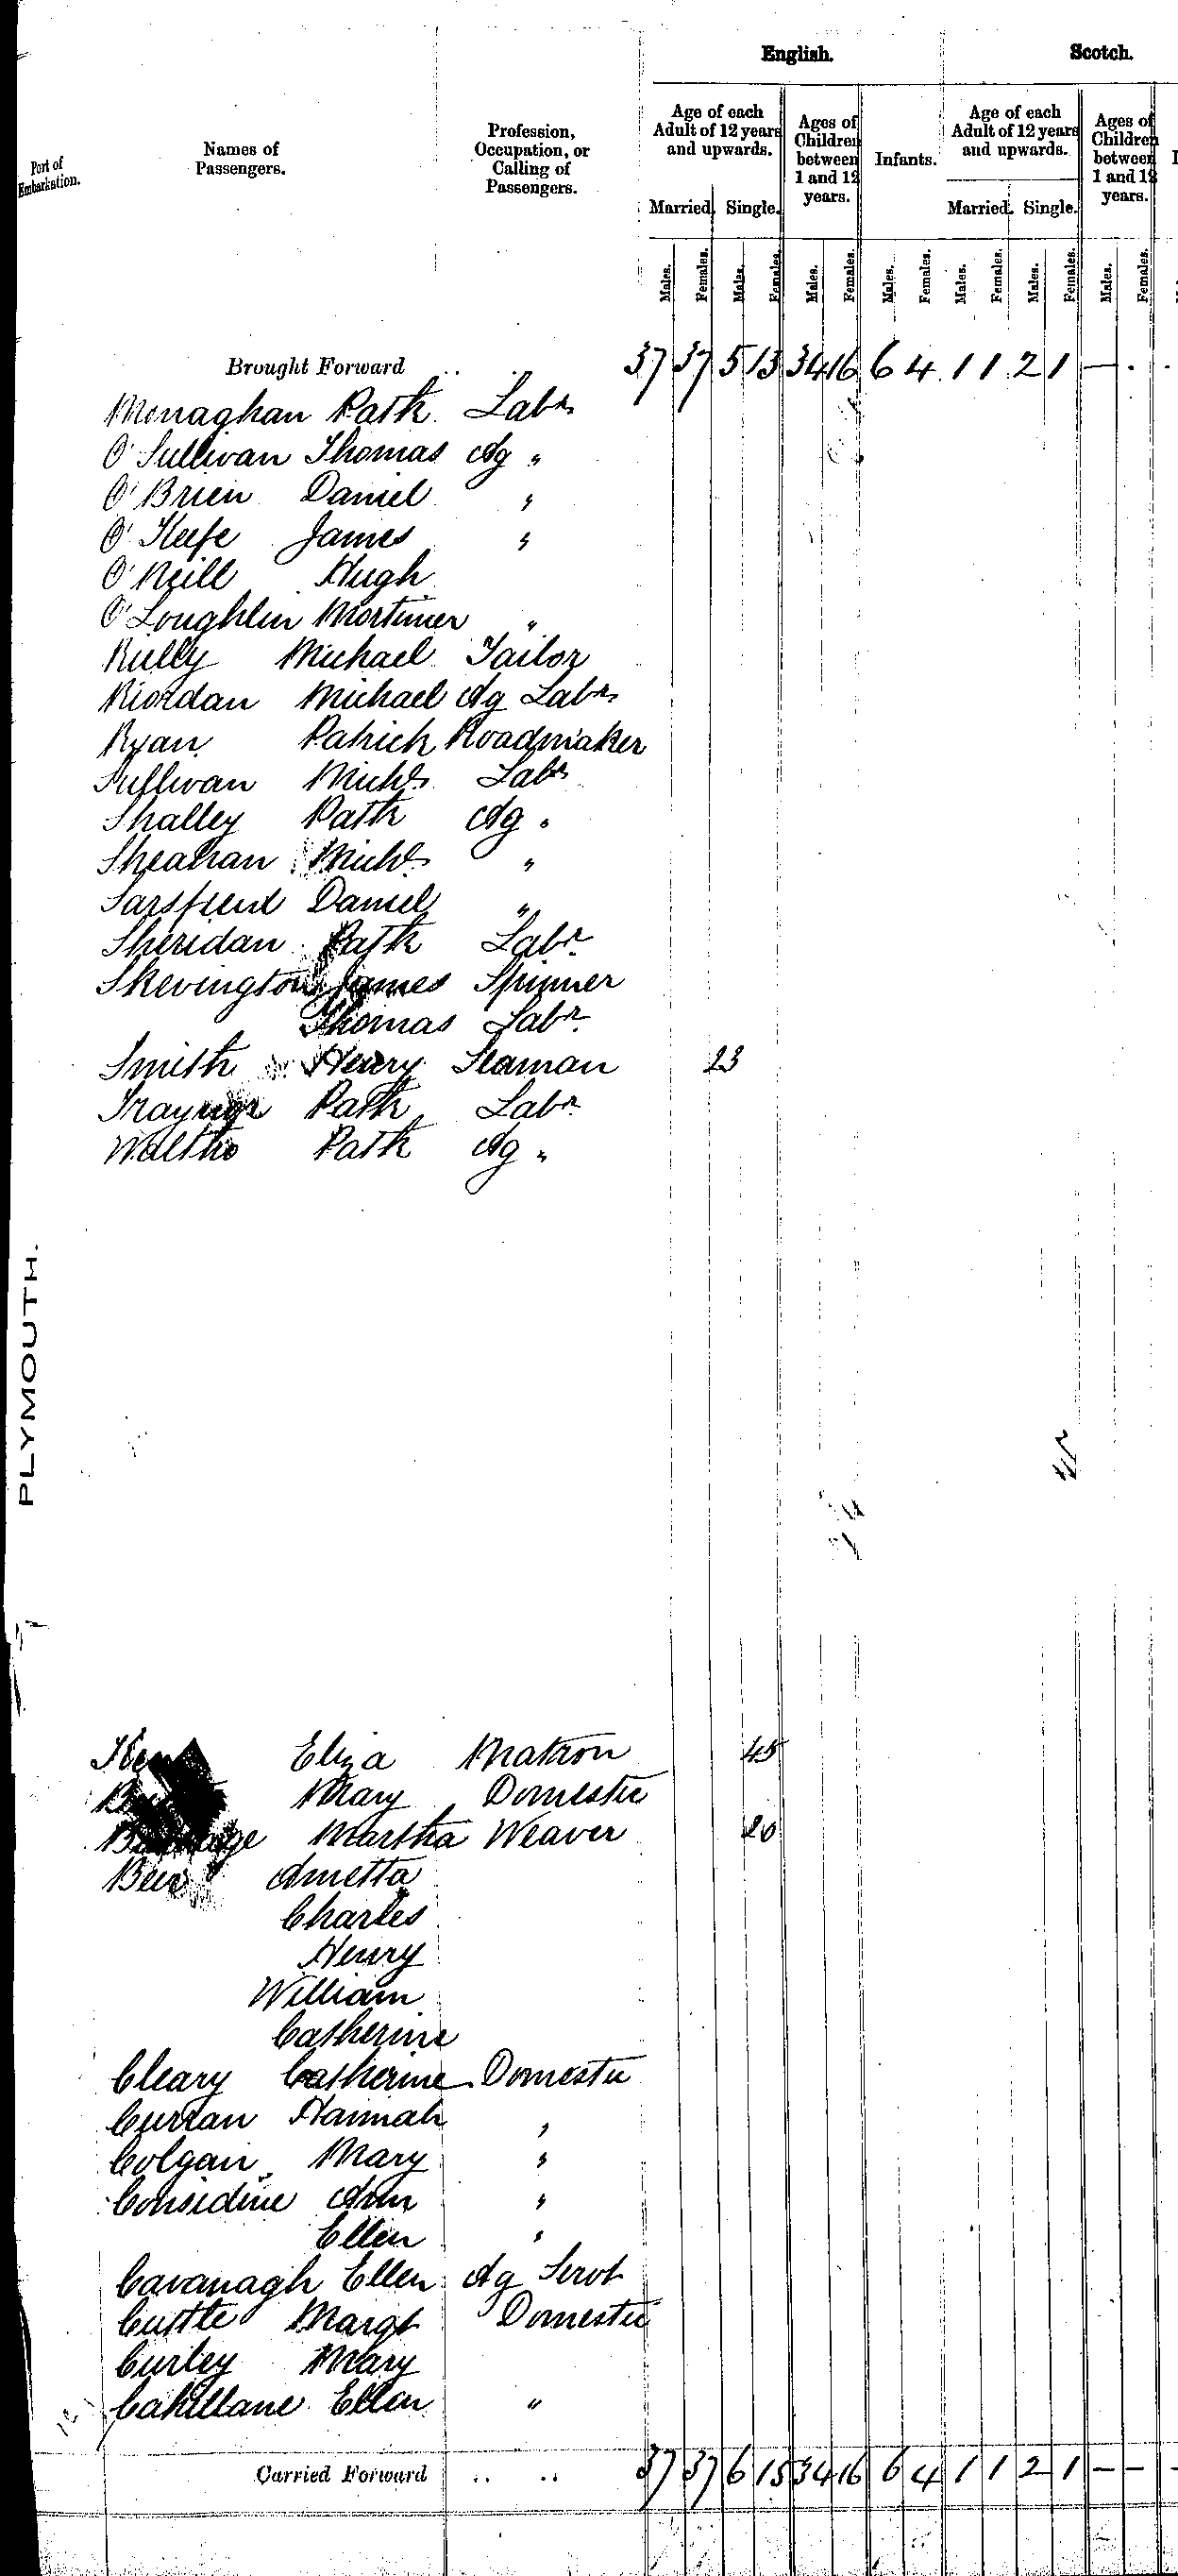 English. Scotch.
Port of Embarkation.
Names of Passengers.
Profession, Occupation, or Calling of Passengers.
Age of each Adult of 12 years and upwards.
Ages of Children between 1 and 12 years.
Infants.
Age of each Adult of 12 years and upwards.
Ages of Children between 1 and 12 years.
Married. Single. Married. Single.
Males. Females. Males. Females. Males. Females. Males. Females. Males. Females. Males. Females. Males. Females.
Brought Forward .. .. 37 37 5 13 34 16 6 4 1 1 2 1 —
Monaghan Patk Labr
O'Sullivan Thomas Ag "
O'Brien Daniel "
O'Keefe James "
O'Neill Hugh
O'Loughlin Mortimer "
Michael Tailor
Riordan Michael Ag Labr
Ryan Patrick Roadmaker
Sullivan Michl Labr
Shalley Patk Ag "
Sheahan Michl "
Sarsfield Daniel "
Sheridan Patk Labr
Skevington James Spinner
Thomas Labr
Smith Henry Seaman 23
Traynor Patk Labr
Patk Ag "
PLYMOUTH.
Eliza Matron 45
Mary Domestic
Martha Weaver 20
Charles
Henry
William
Catherine
Cleary Catherine Domestic
Curran Hannah "
Colgan Mary "
Considine Ann "
Ellen "
Cavanagh Ellen Ag Servt
Margt Domestic
Curley Mary
Cahillane Ellen "
Carried Forward .. .. 37 37 6 15 34 16 6 4 1 1 2 1 — —